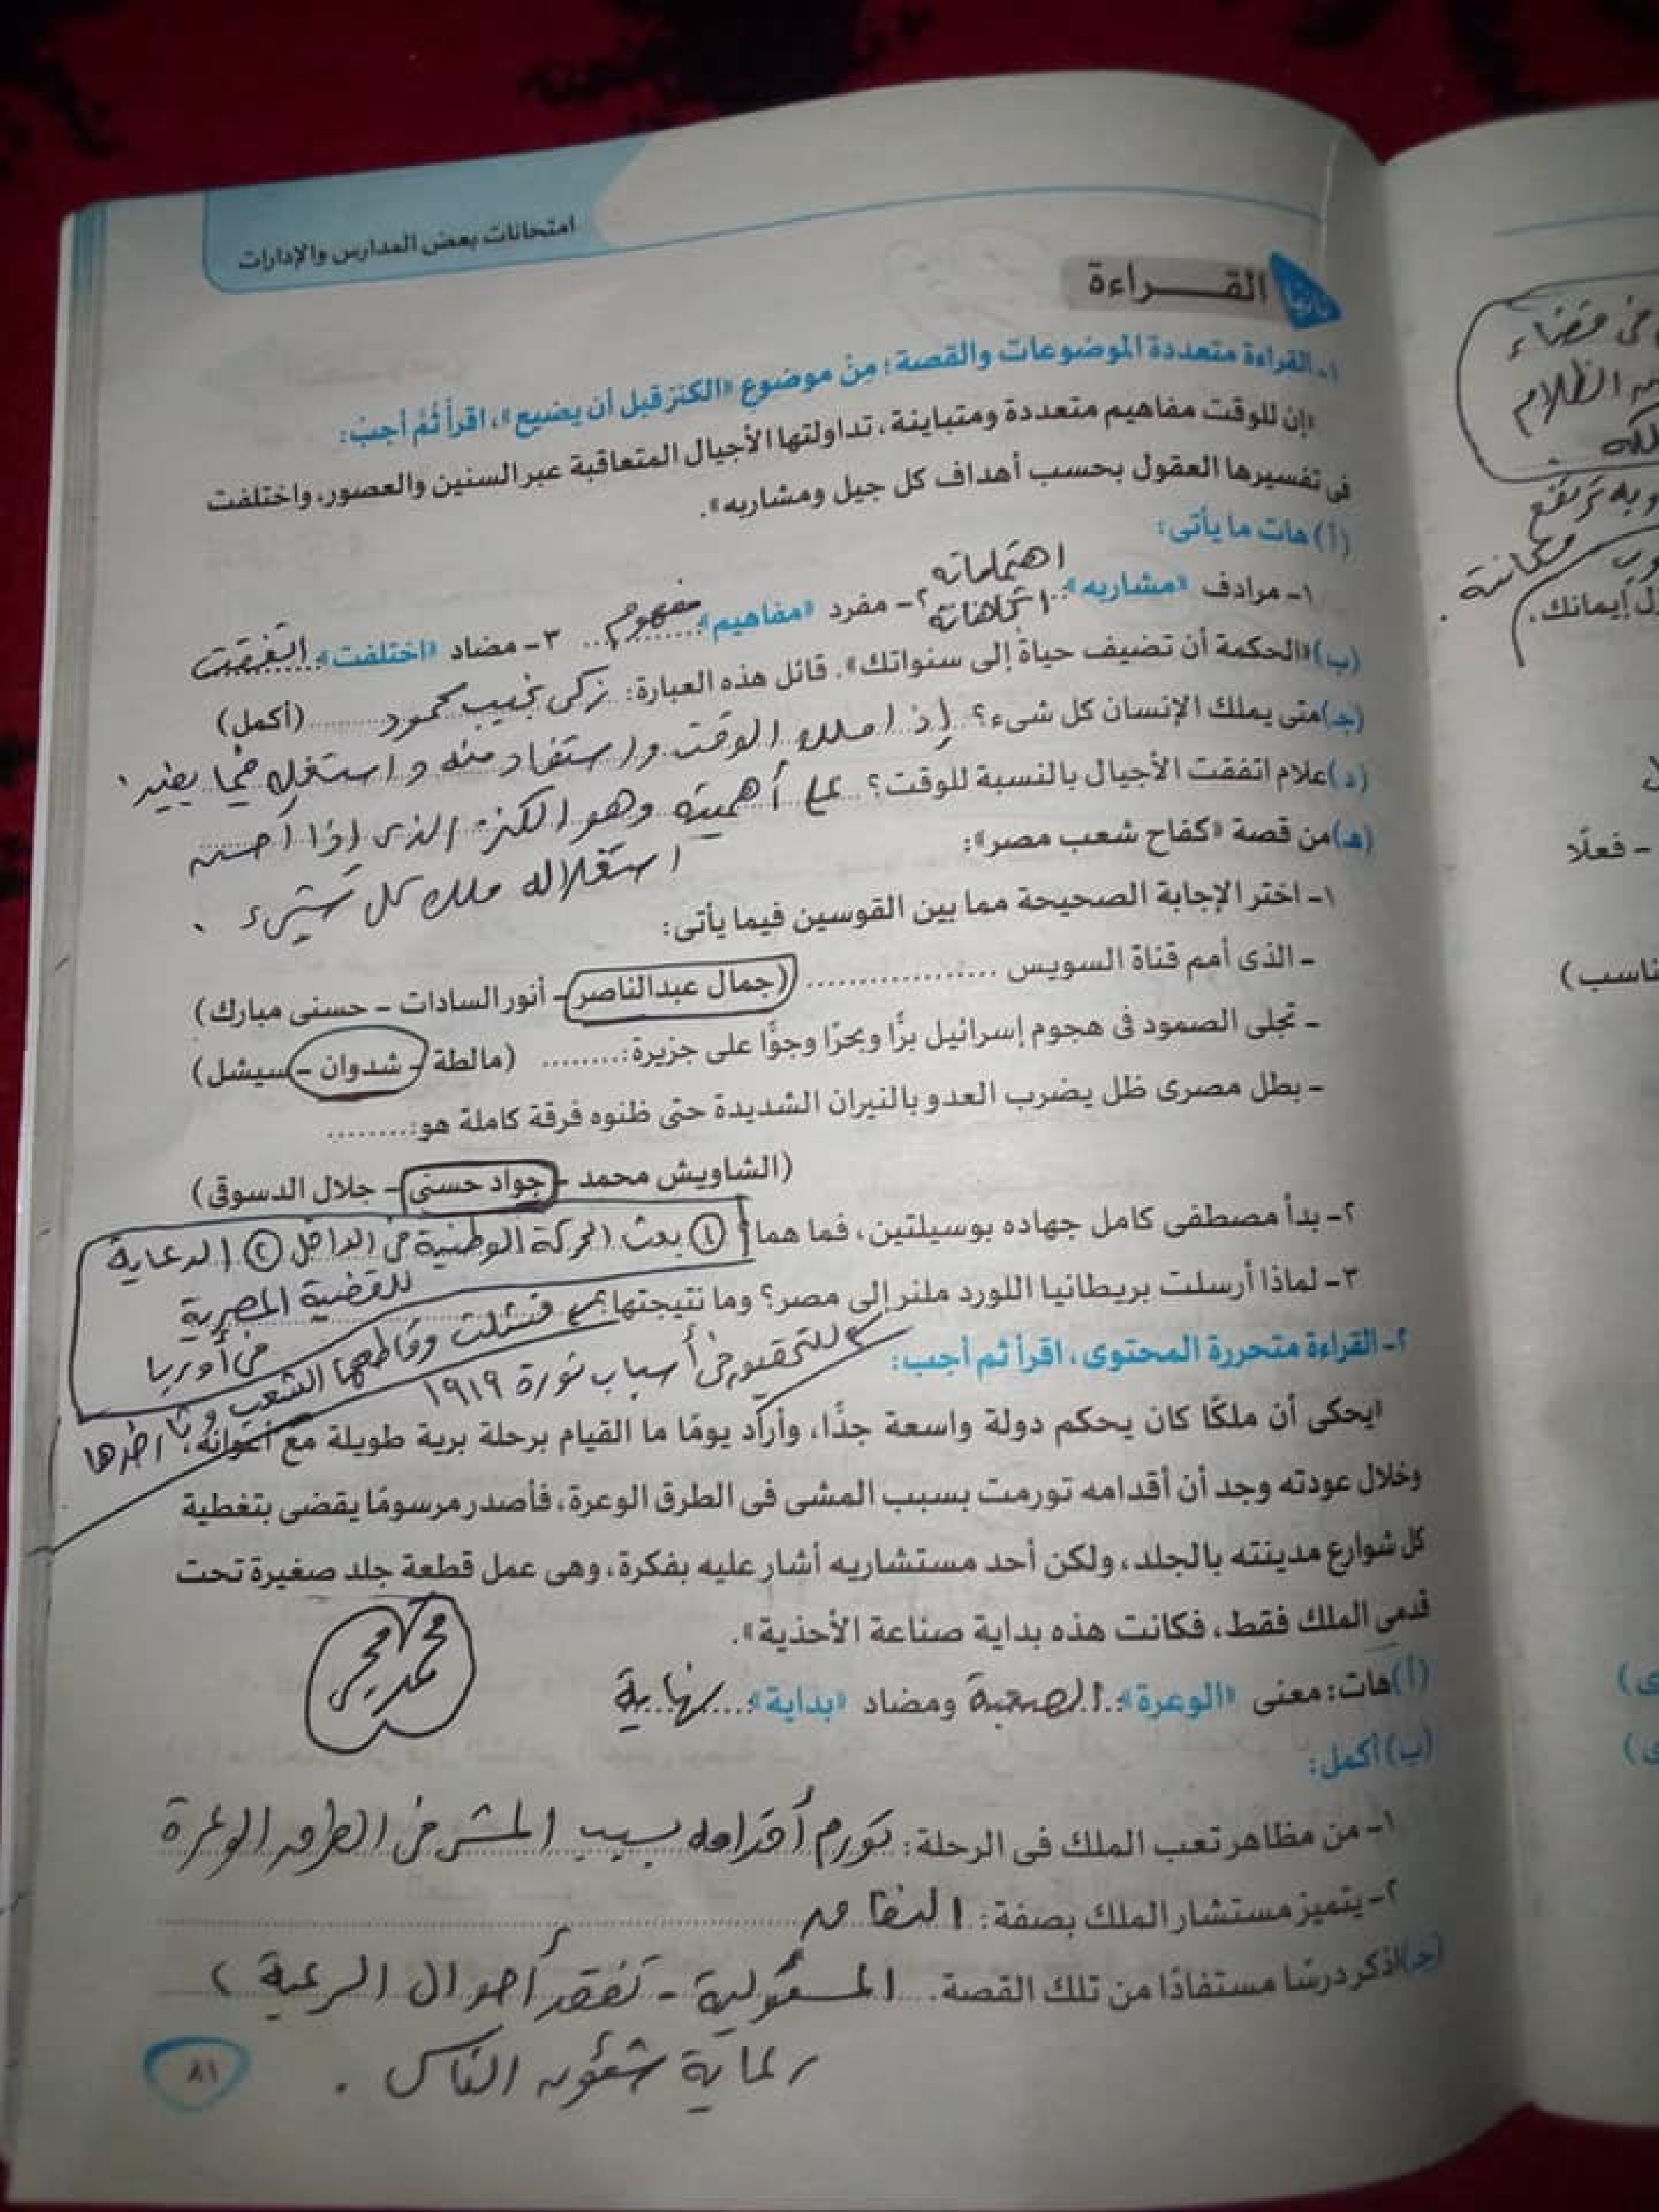 امتحانات بعض المدارس والإدارات
ثانيا القـــراءة
١- القراءة متعددة الموضوعات والقصة؛ مِنْ موضوع «الكنز قبل أن يضيع»، اقرأ ثُمَّ أجب:
«إن للوقت مفاهيم متعددة ومتباينة، تداولتها الأجيال المتعاقبة عبر السنين والعصور، واختلفت
فى تفسيرها العقول بحسب أهداف كل جيل ومشاربه».
(أ) هات ما يأتى:
اهتماماته
١- مرادف «مشاربه»: اتجاهاته ٢- مفرد «مفاهيم»: مفهوم ٣- مضاد «اختلفت»: اتفقت
(ب) «الحكمة أن تضيف حياةً إلى سنواتك». قائل هذه العبارة: زكى نجيب محمود (أكمل)
(جـ) متى يملك الإنسان كل شىء؟ إذا ملك الوقت واستفاد منه واستغله فيما يفيد.
(د) علام اتفقت الأجيال بالنسبة للوقت؟ على أهميته وهو الكنز الذى إذا أحسن
استغلاله ملك كل شىء.
(هـ) من قصة «كفاح شعب مصر»:
١- اختر الإجابة الصحيحة مما بين القوسين فيما يأتى:
- الذى أمم قناة السويس .................. (جمال عبدالناصر - أنور السادات - حسنى مبارك)
- تجلى الصمود فى هجوم إسرائيل برًّا وبحرًا وجوًّا على جزيرة: ........ (مالطة - شدوان - سيشل)
- بطل مصرى ظل يضرب العدو بالنيران الشديدة حتى ظنوه فرقة كاملة هو: .........
(الشاويش محمد - جواد حسنى - جلال الدسوقى)
٢- بدأ مصطفى كامل جهاده بوسيلتين، فما هما؟ ① بعث الحركة الوطنية فى الداخل ② الدعاية
للقضية المصرية
فى أوربا
٣- لماذا أرسلت بريطانيا اللورد ملنر إلى مصر؟ وما نتيجتها؟ فشلت وقاطعها الشعب
للتحقيق فى أسباب ثورة ١٩١٩
٢- القراءة متحررة المحتوى، اقرأ ثم أجب:
«يحكى أن ملكًا كان يحكم دولة واسعة جدًّا، وأراد يومًا ما القيام برحلة برية طويلة مع أعوانه،
وخلال عودته وجد أن أقدامه تورمت بسبب المشى فى الطرق الوعرة، فأصدر مرسومًا يقضى بتغطية
كل شوارع مدينته بالجلد، ولكن أحد مستشاريه أشار عليه بفكرة، وهى عمل قطعة جلد صغيرة تحت
قدمى الملك فقط، فكانت هذه بداية صناعة الأحذية».
(أ) هات: معنى «الوعرة»: الصعبة ومضاد «بداية»: نهاية
(ب) أكمل:
١- من مظاهر تعب الملك فى الرحلة: تورم أقدامه بسبب المشى فى الطرق الوعرة
٢- يتميز مستشار الملك بصفة:
(جـ) اذكر درسًا مستفادًا من تلك القصة. المسئولية - تفقد أحوال الرعية،
رعاية شئون الناس.
٨١
فى فضاء
الظلام
وبه ترتفع
مكانة
إيمانك.
- فعلًا